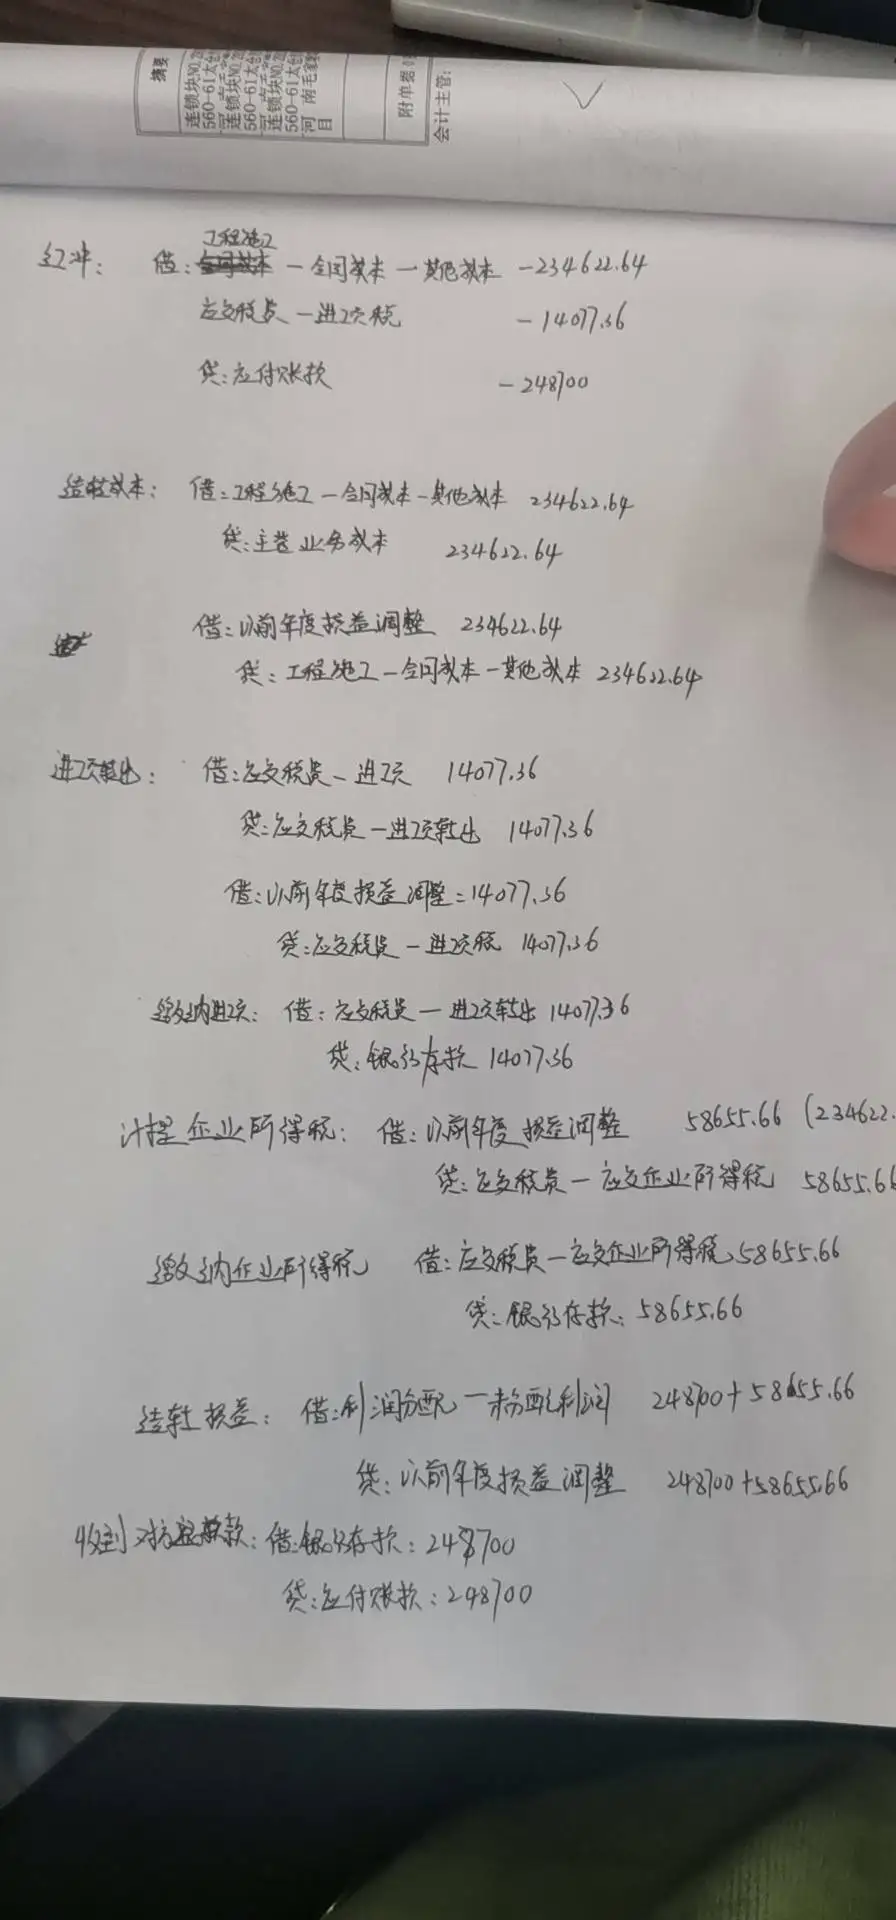 摘要
连锁块NO.2
560-61太创
连锁块NO.2
560-61太创
连锁块NO.2
560-61太创
河 南毛家
目
附单据0
会计主管:
工程施工
红冲: 借: 一合同成本一其他成本 -234622.64
应交税费一进项税 -14077.36
贷:应付账款 -248700
结转成本: 借:工程施工一合同成本一其他成本 234622.64
贷:主营业务成本 234622.64
借:以前年度损益调整 234622.64
贷:工程施工一合同成本一其他成本 234622.64
进项转出: 借:应交税费一进项 14077.36
贷:应交税费一进项转出 14077.36
借:以前年度损益调整:14077.36
贷:应交税费一进项税 14077.36
缴纳进项: 借:应交税费一进项转出 14077.36
贷:银行存款 14077.36
计提企业所得税: 借:以前年度损益调整 58655.66 (234622.
贷:应交税费一应交企业所得税 58655.66
缴纳企业所得税 借:应交税费一应交企业所得税 58655.66
贷:银行存款:58655.66
结转损益: 借:利润分配一未分配利润 248700+58655.66
贷:以前年度损益调整 248700+58655.66
收到对方款:借:银行存款:248700
贷:应付账款:248700